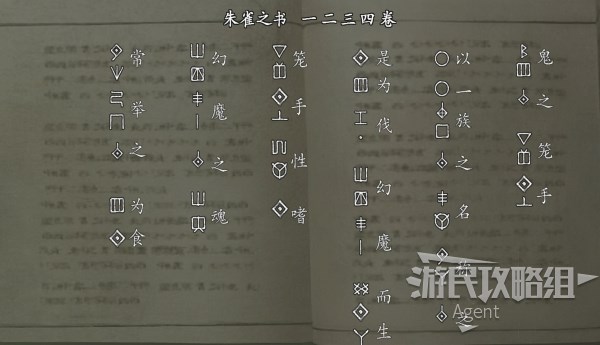 朱雀之书 一二三四卷
鬼之 笼手
以一族之名称之
是为伐 幻魔 而生
笼手 性嗜
幻魔之 魂
常举之 为食
游民攻略组
Agent